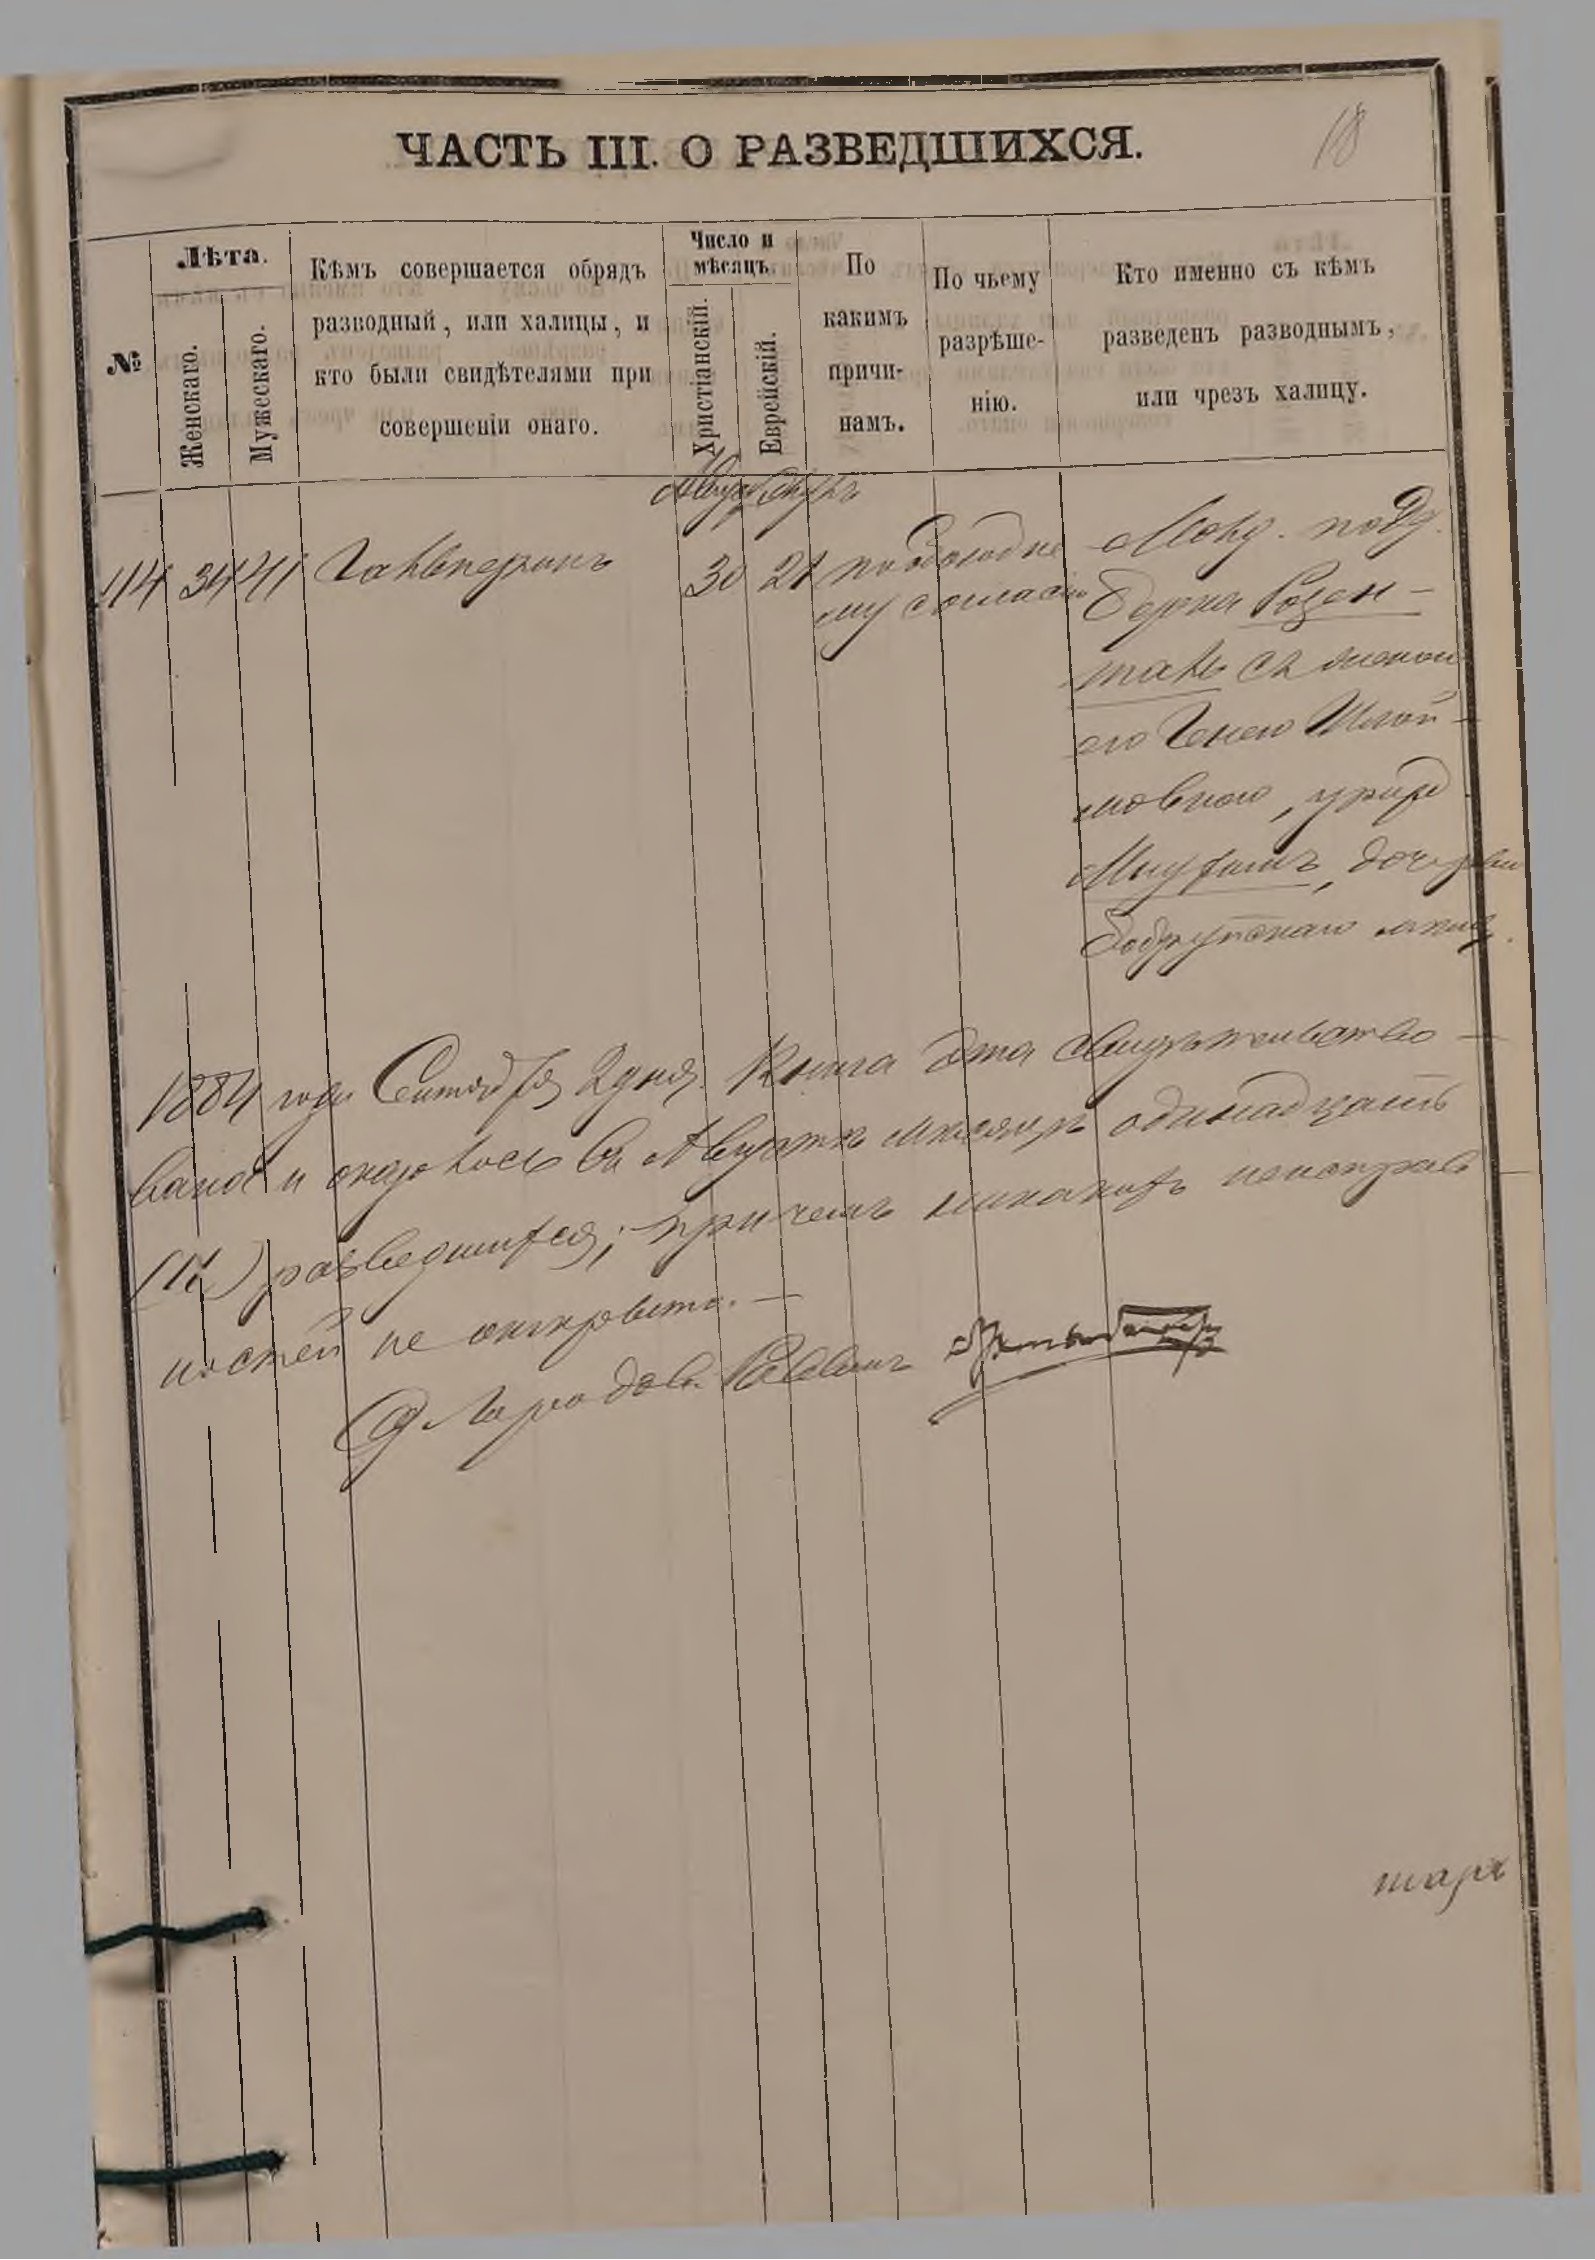 18
ЧАСТЬ III. О РАЗВЕДШИХСЯ.
№
Лѣта.
Женскаго.
Мужескаго.
Кѣмъ совершается обрядъ
разводный, или халицы, и
кто были свидѣтелями при
совершеніи онаго.
Число и
мѣсяцъ.
Христіанскій.
Еврейскій.
По
какимъ
причи-
намъ.
По чьему
разрѣше-
нію.
Кто именно съ къмъ
разведенъ разводнымъ,
или чрезъ халицу.
114 34 41 Гальперинъ 30 21 по обоюдно
му согласію
Берка Розен-
таль съ женою
его Генею Шлой-
мовною, урожд
дочерью
1884 года Сентября 2 дня. Книга эта свидѣтельство-
вана и оказалось въ Августѣ мѣсяцѣ одинадцать
(11) разведшихся; причемъ никакихъ неисправ-
ностей не открыто. —
Городов. Раввинъ